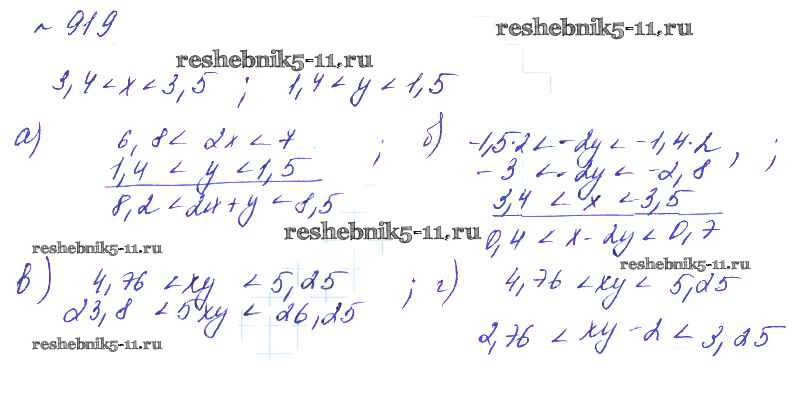 № 919
reshebnik5-11.ru
reshebnik5-11.ru
3,4 < x < 3,5 ; 1,4 < y < 1,5
а) 6,8 < 2x < 7
1,4 < y < 1,5 ;
8,2 < 2x + y < 8,5
б) -1,5·2 < -2y < -1,4·2
-3 < -2y < -2,8 , ;
3,4 < x < 3,5
0,4 < x - 2y < 0,7
reshebnik5-11.ru
reshebnik5-11.ru
reshebnik5-11.ru
в) 4,76 < xy < 5,25
23,8 < 5xy < 26,25 ;
г) 4,76 < xy < 5,25
2,76 < xy - 2 < 3,25
reshebnik5-11.ru